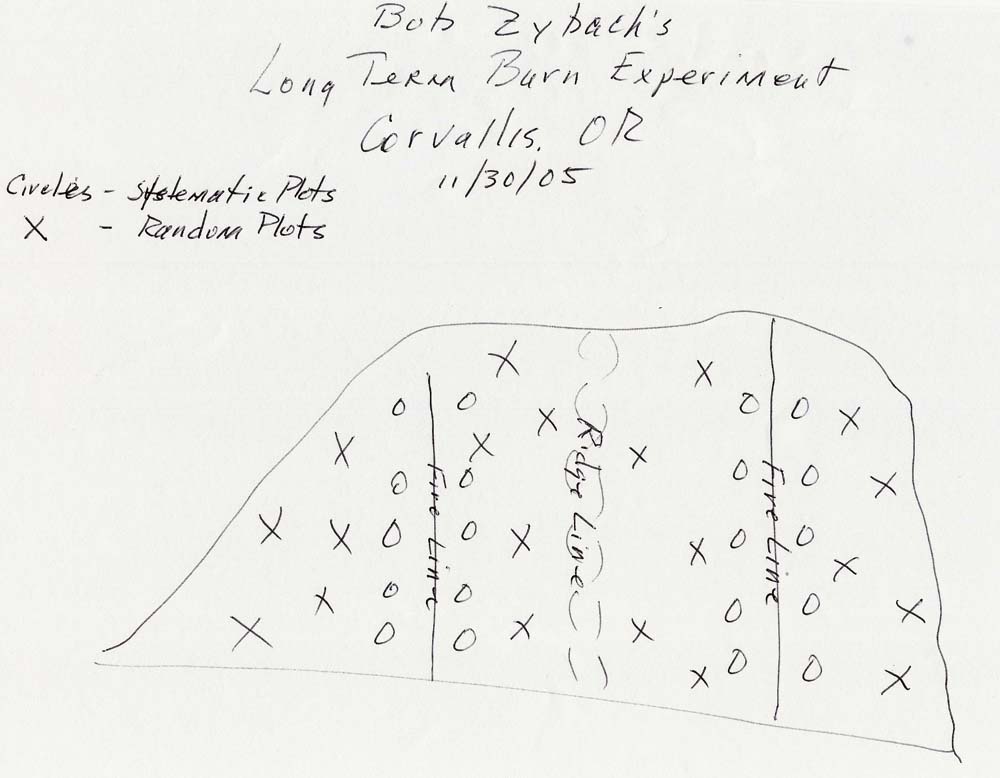 Bob Zybach's
Long Term Burn Experiment
Corvallis, OR
11/30/05
Circles - Systematic Plots
X - Random Plots
Fire Line
Ridge Line
Fire Line